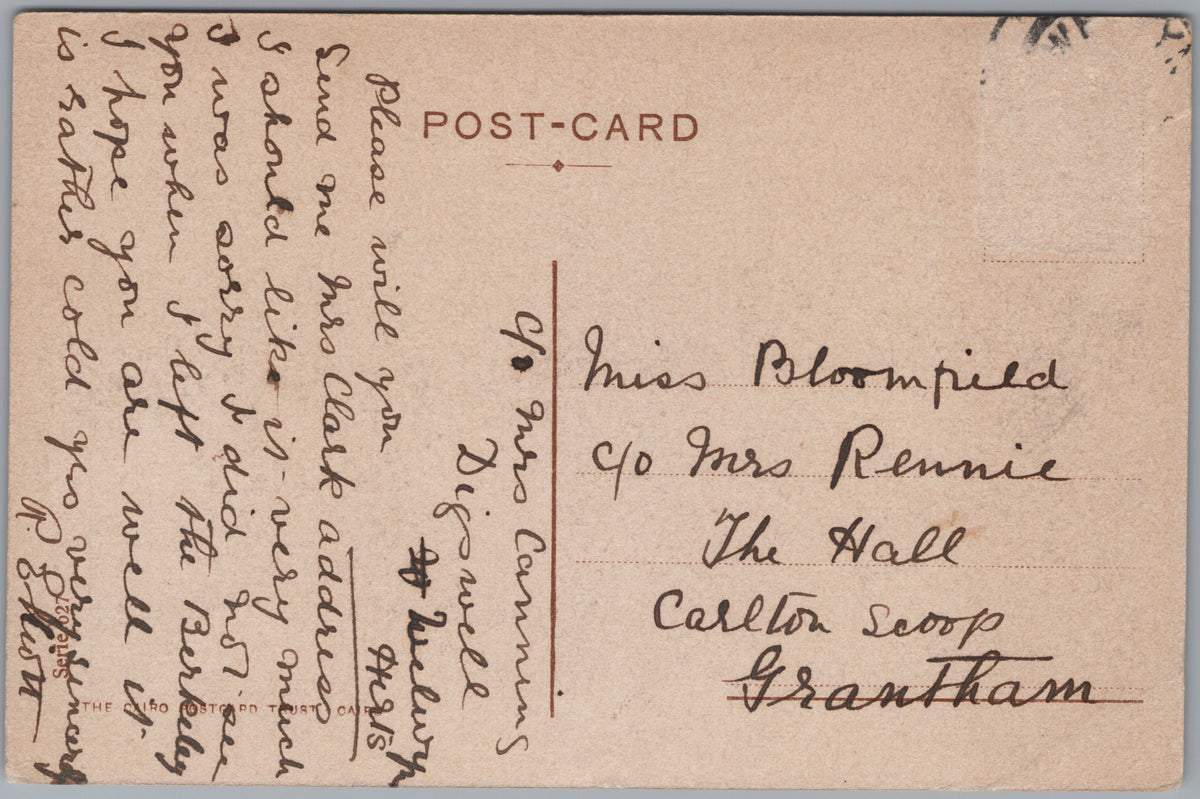 POST-CARD
c/o Mrs Canning
Digswell
Welwyn
Herts
Please will you
Send me Mrs Clark address
I should like it very much
I was sorry I did not see
you when I left the Berkeley
I hope you are well it
is rather cold yrs very sincerely
Miss Bloomfield
c/o Mrs Rennie
The Hall
Carlton Scoop
Grantham
Serie 627
THE CAIRO POSTCARD TRUST, CAIRO